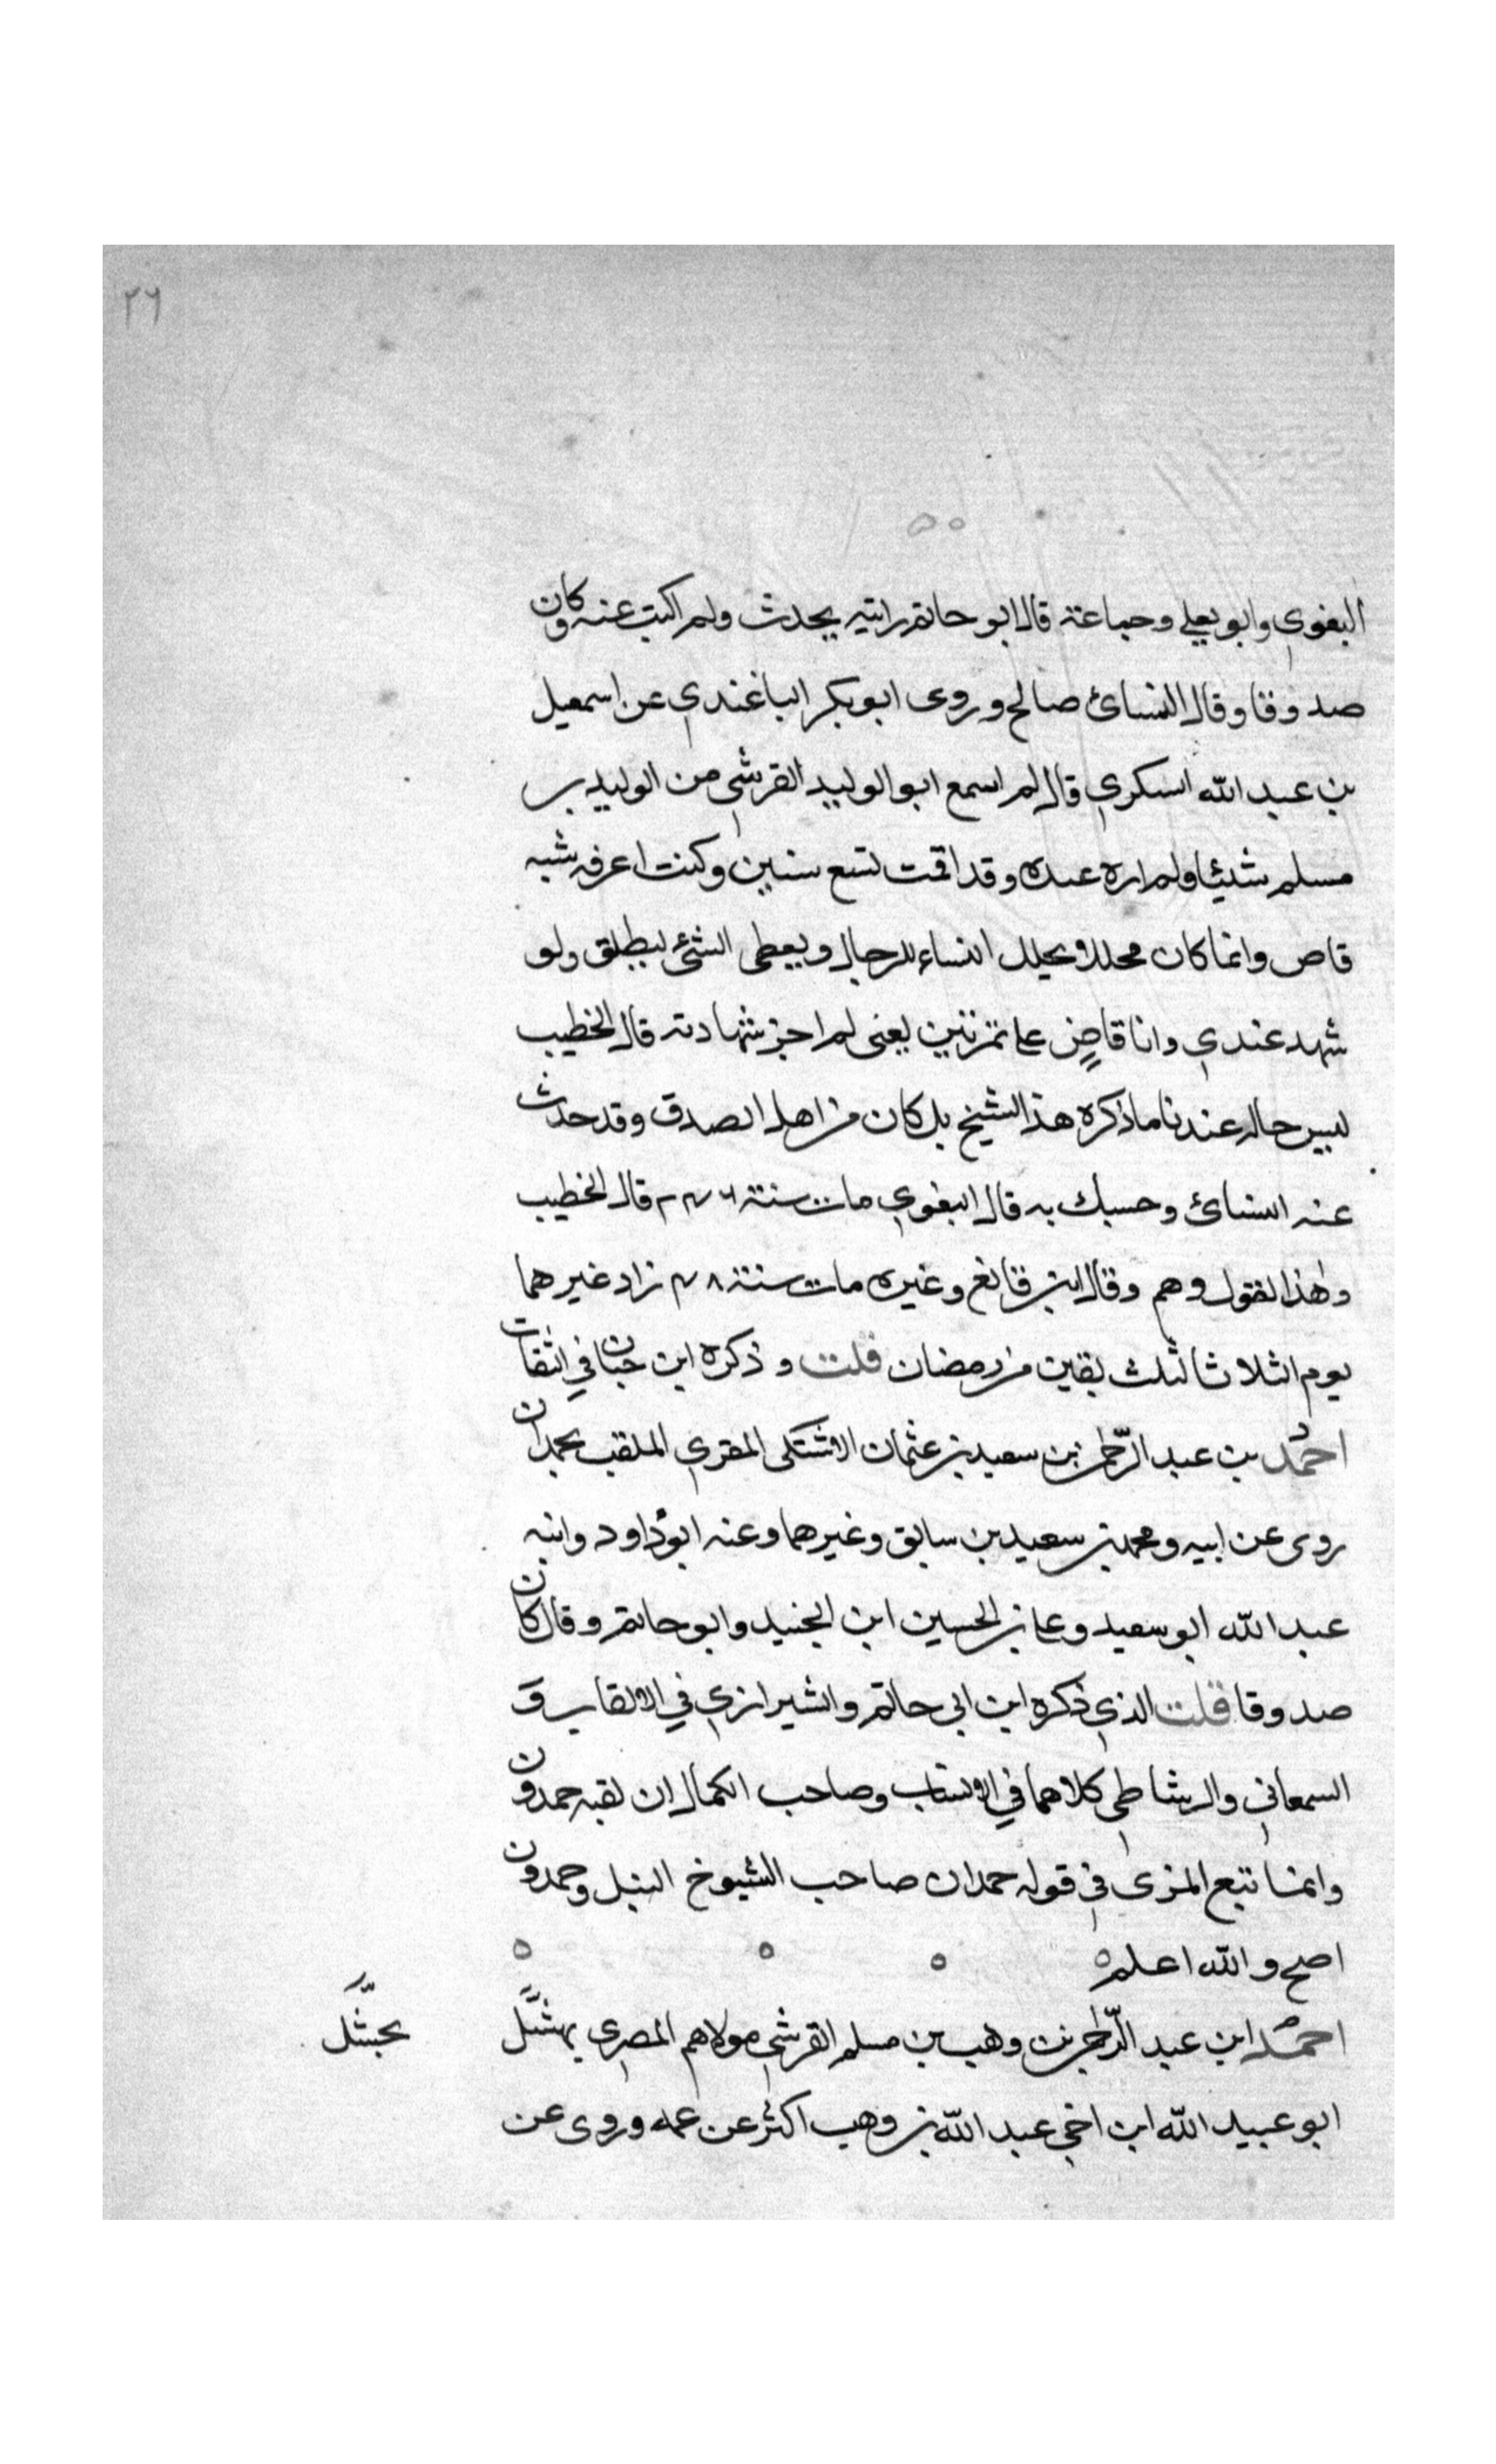 ٢٦
البغوي وابو يعلي وجماعة قال ابو حاتم رايته يحدث ولم اكتب عنه وكان
صدوقا وقال النسائ صالح وروى ابو بكر الباغندي عن اسمعيل
بن عبد الله السكري قال لم اسمع ابو الوليد القرشي من الوليد بن
مسلم شيئا ولم اره عبده وقد اقمت تسع سنين وكنت اعرفه شبه
قاص وانما كان محللا يحلل النساء للرجال ويعطى الشئ ليطلق ولو
شهد عندي وانا قاضٍ على تمرتين يعنى لم اجز شهادته قال الخطيب
ليس حاله عندنا ما ذكره هذا الشيخ بل كان من اهل الصدق وقد حدث
عنه النسائ وحسبك به قال البغوي مات سنة قال الخطيب
وهذا القول وهم وقال ابن قانع وغيره مات سنة زاد غيرهما
يوم الثلاثا لثلث بقين من رمضان قلت وذكره ابن حبان في الثقات
احمد بن عبد الرحمن بن سعيد بن عثمان الاشتكى المقري الملقب بحمدان
روى عن ابيه ومحمد بن سعيد بن سابق وغيرهما وعنه ابو داود وابنه
عبد الله ابو سعيد وعلى بن الحسين ابن الجنيد وابو حاتم وقال كان
صدوقا قلت الذي ذكره ابن ابي حاتم والشيرازي في الالقاب وَ
السمعاني والرشاطي كلاهما في الانساب وصاحب الكمال ان لقبه حمدون
وانما تبع المزى في قوله حمدان صاحب الشيوخ النبل وحمدون
اصح والله اعلم
احمد ابن عبد الرحمن بن وهب بن مسلم القرشي مولاهم المصري بهشَّل
بحبشَّل
ابو عبيد الله ابن اخي عبد الله بن وهب اكثر عن عمه وروى عن